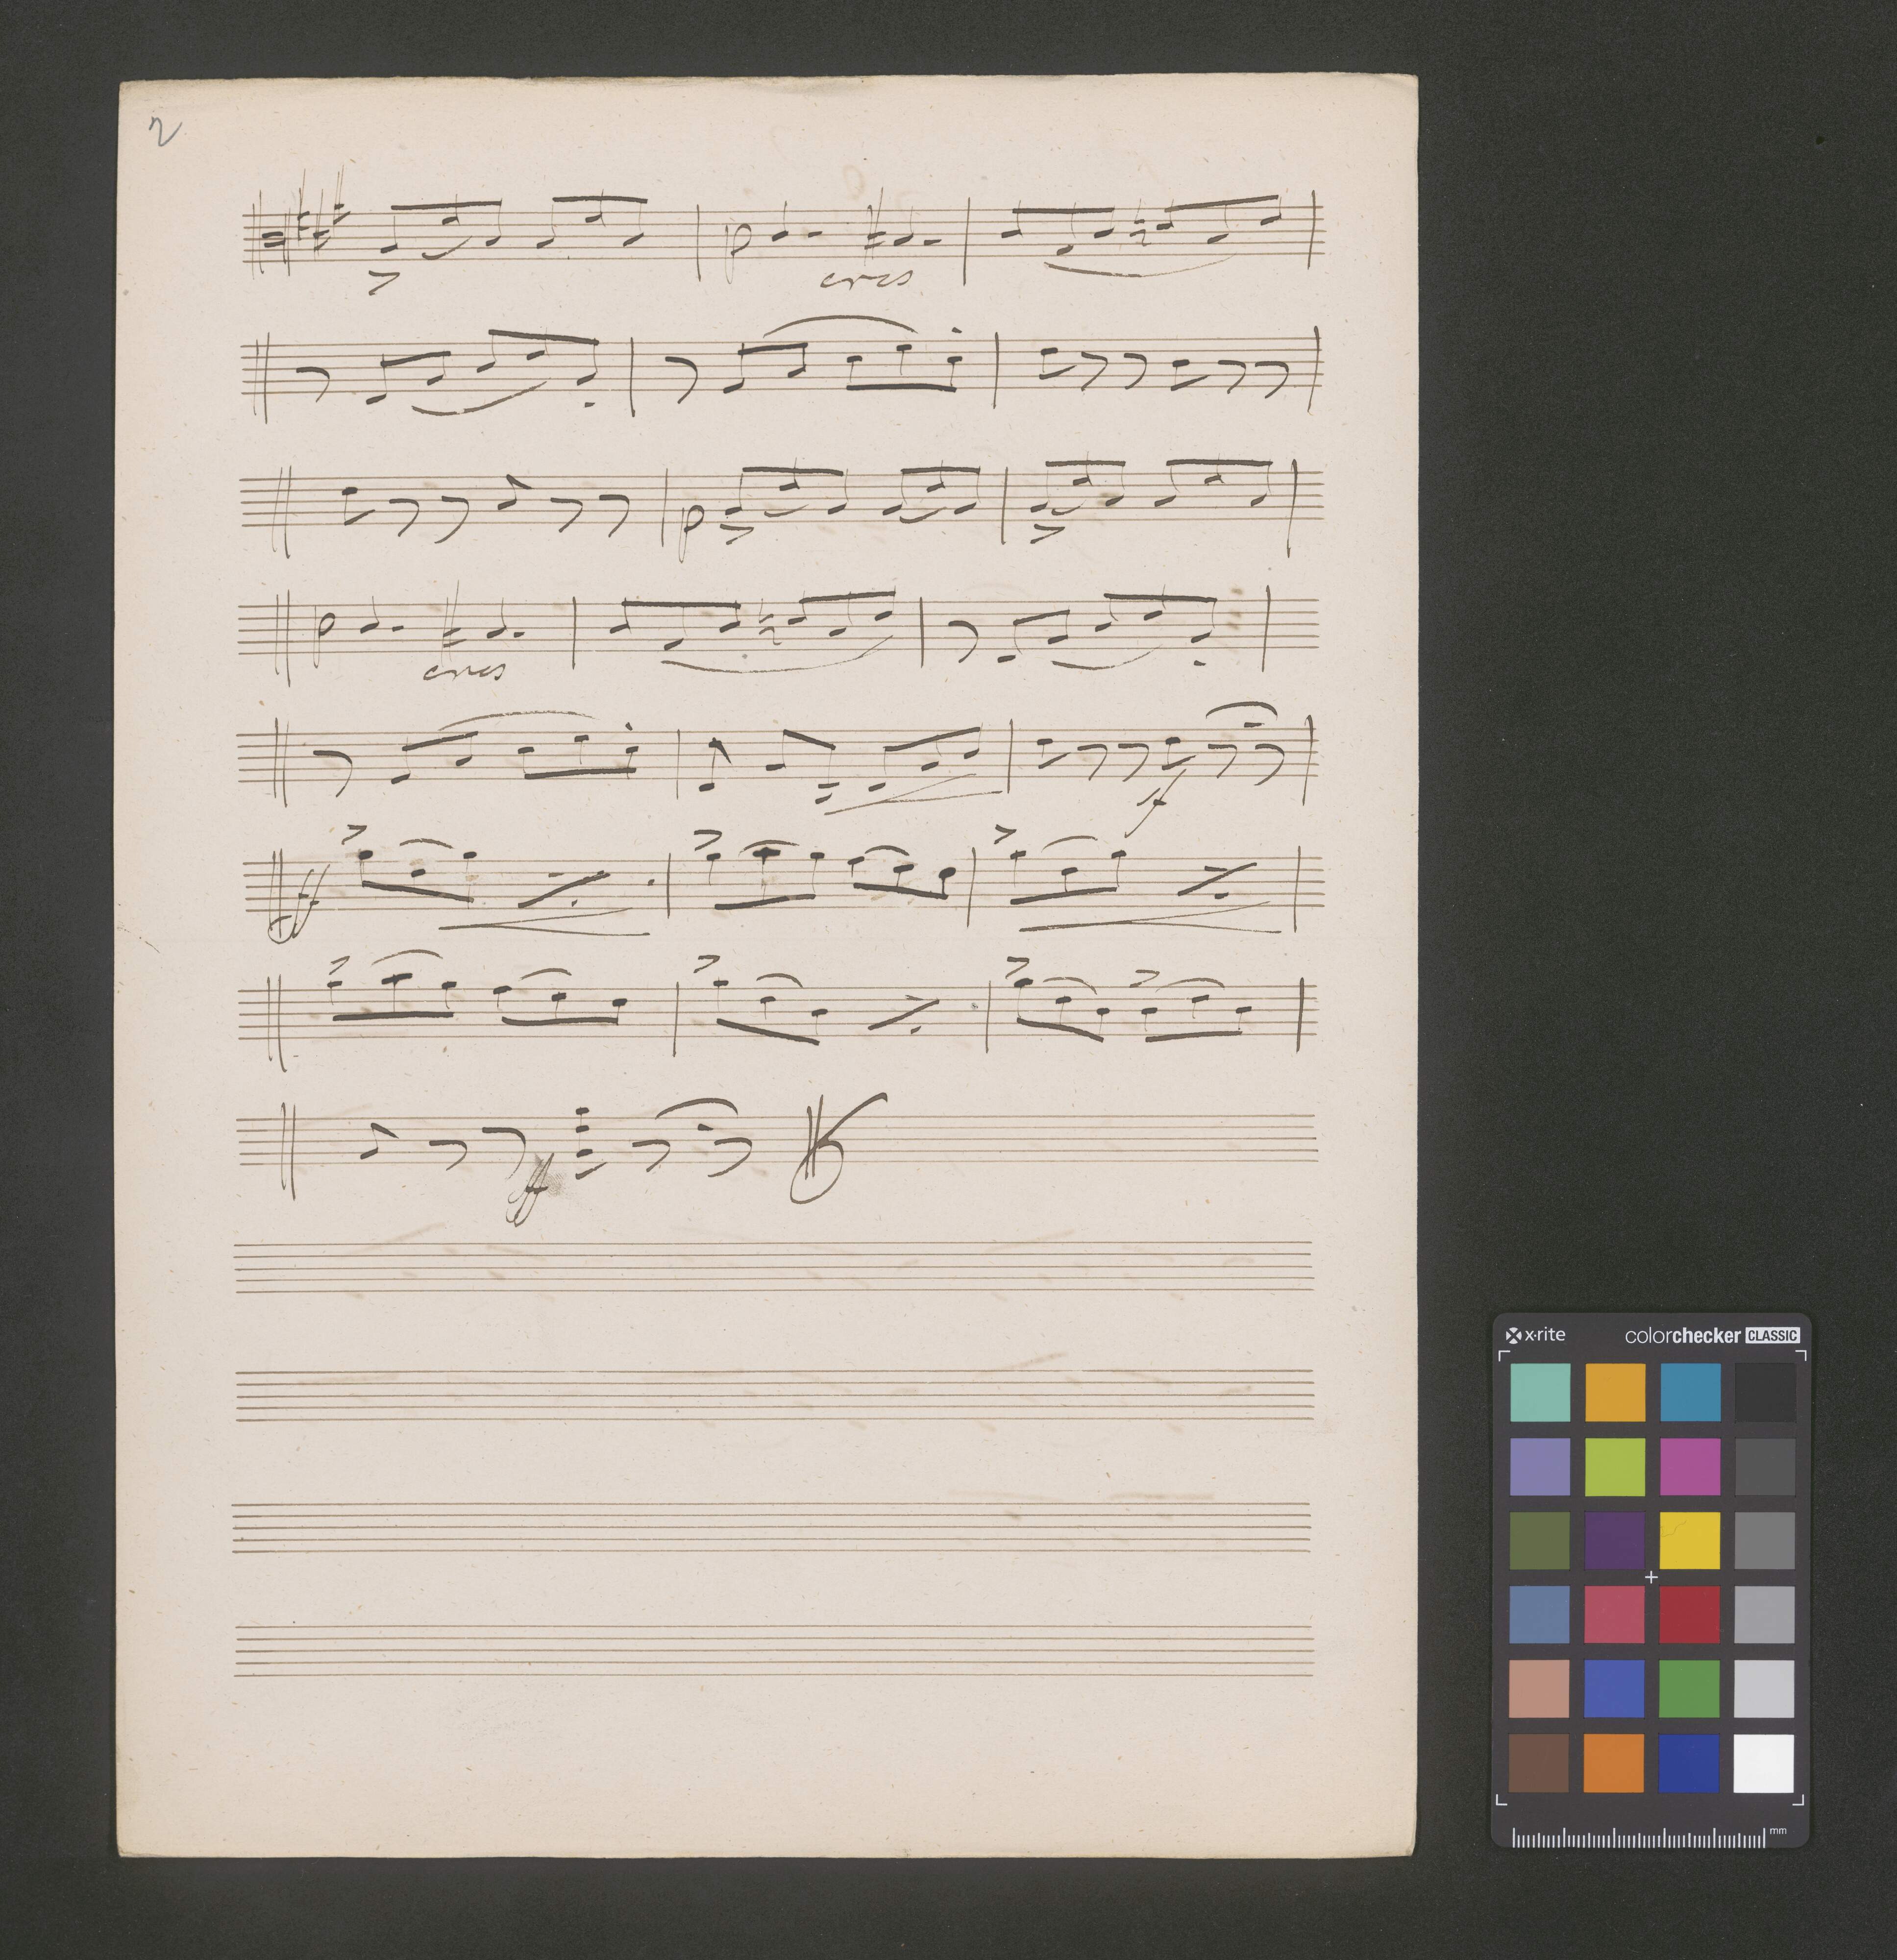 2
p cres
p
p cres
sf
ff
ff
x·rite colorchecker CLASSIC
mm